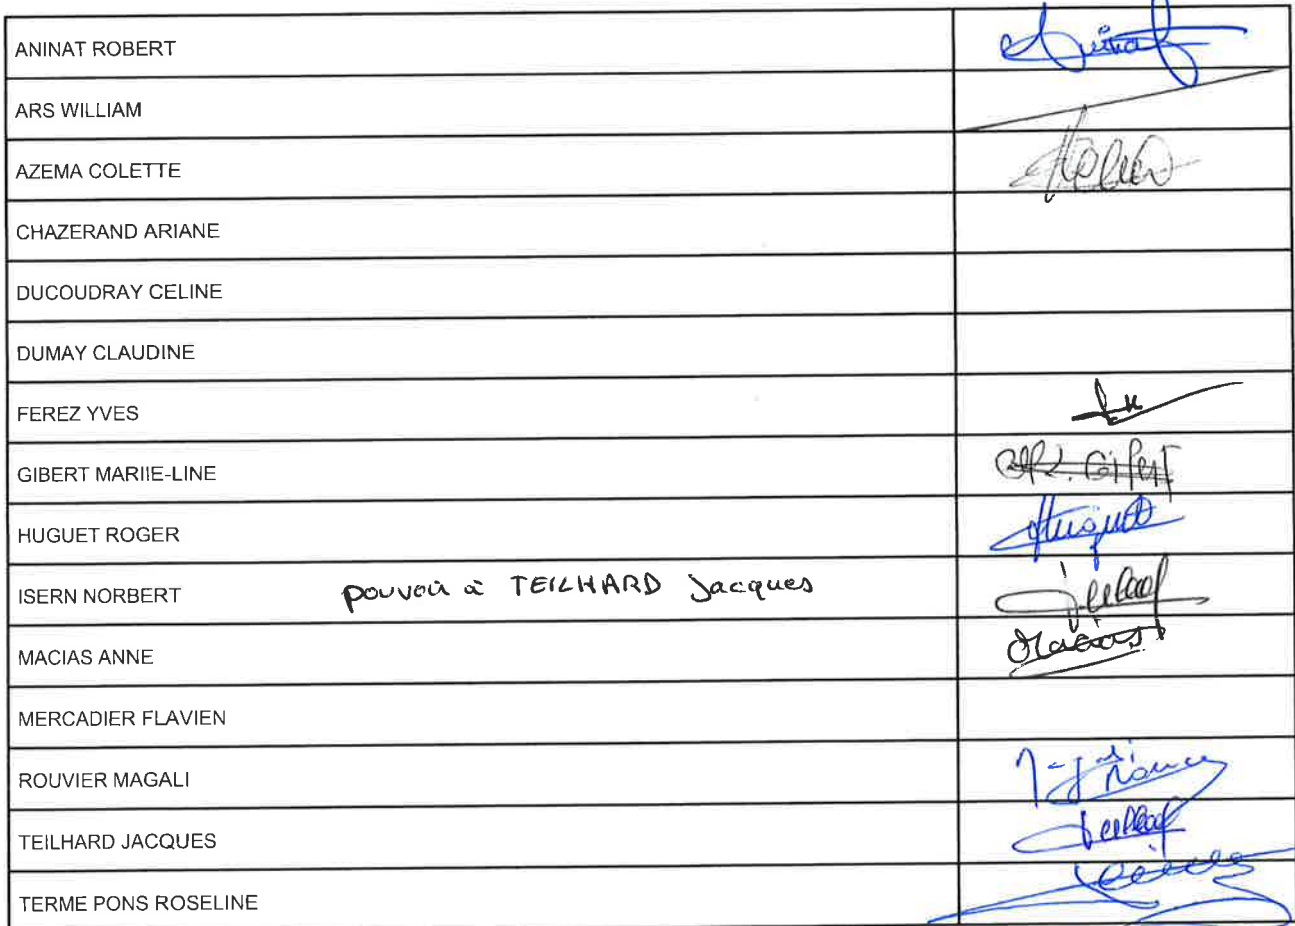 ANINAT ROBERT
ARS WILLIAM
AZEMA COLETTE
CHAZERAND ARIANE
DUCOUDRAY CELINE
DUMAY CLAUDINE
FEREZ YVES
GIBERT MARIIE-LINE
HUGUET ROGER Huguet
ISERN NORBERT pouvoir à TEILHARD Jacques
MACIAS ANNE Macias
MERCADIER FLAVIEN
ROUVIER MAGALI
TEILHARD JACQUES
TERME PONS ROSELINE